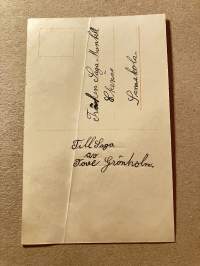 Fröken Saga Munkel
Ekenäs
Somakola
Till Saga
av
Tove Grönholm